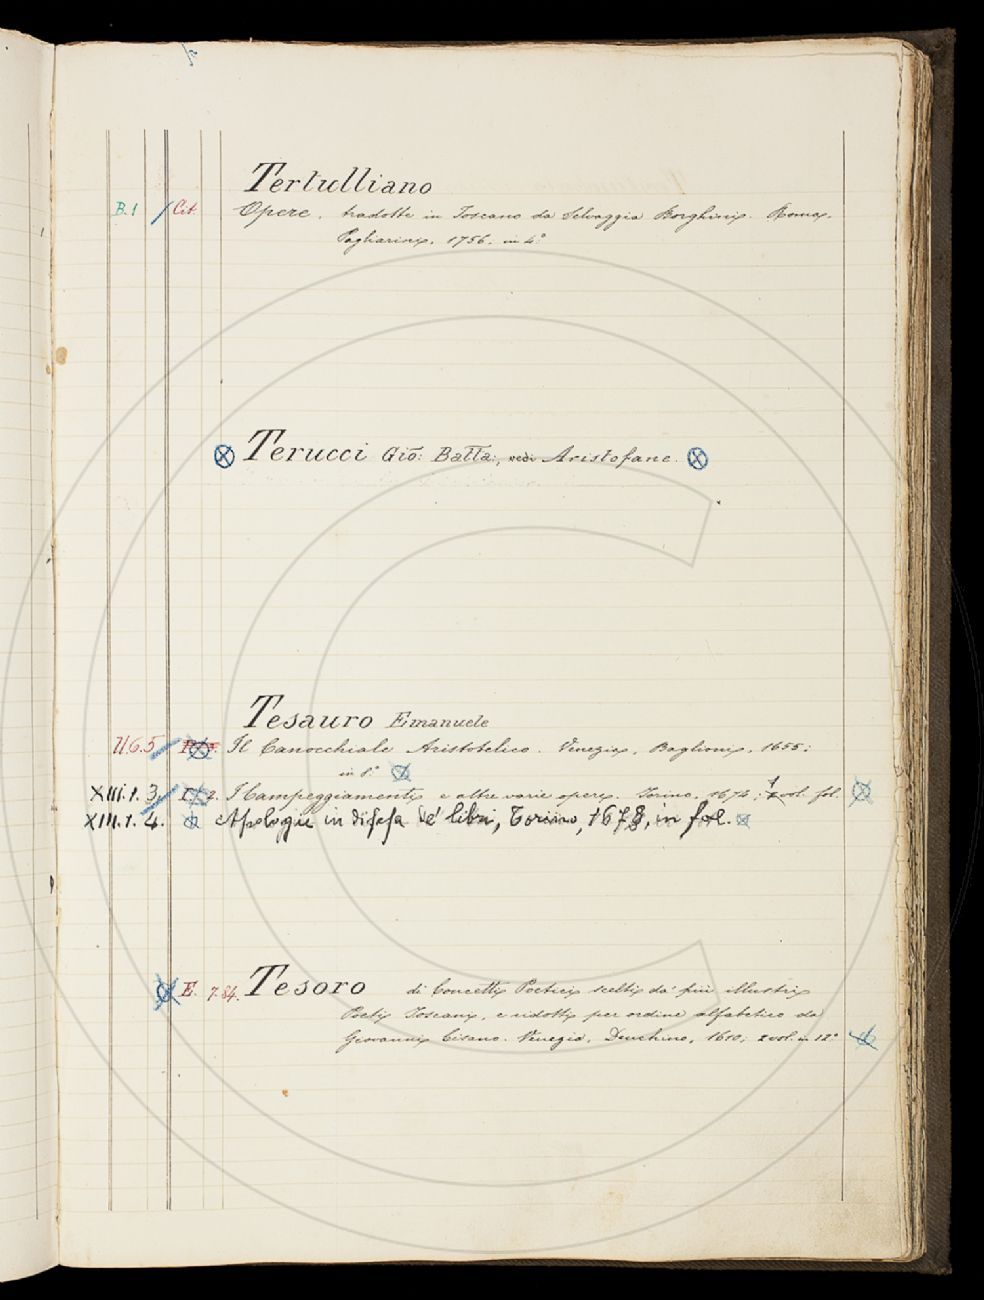 Tertulliano
B.1 Cit. Opere, tradotte in Toscano da Selvaggia Borghini. Roma,
Pagliarini, 1756. in 4.°
Terucci Gio: Batta:, vedi Aristofane.
Tesauro Emanuele
II.6.5 Il Canocchiale Aristotelico. Venezia, Baglioni, 1655;
in 8.°
XIII.1.3. I Campeggiamenti e altre varie opere. Torino, 1674; vol. fol.
XIII.1.4. Apologie in difesa de' libri, Torino, 1673, in fol.
E. 7.84. Tesoro di Concetti Poetici scelti da' più illustri
Poeti Toscani, e ridotti per ordine alfabetico da
Giovanni Cisano. Venezia, Deuchino, 1610; 2 vol. in 12.°